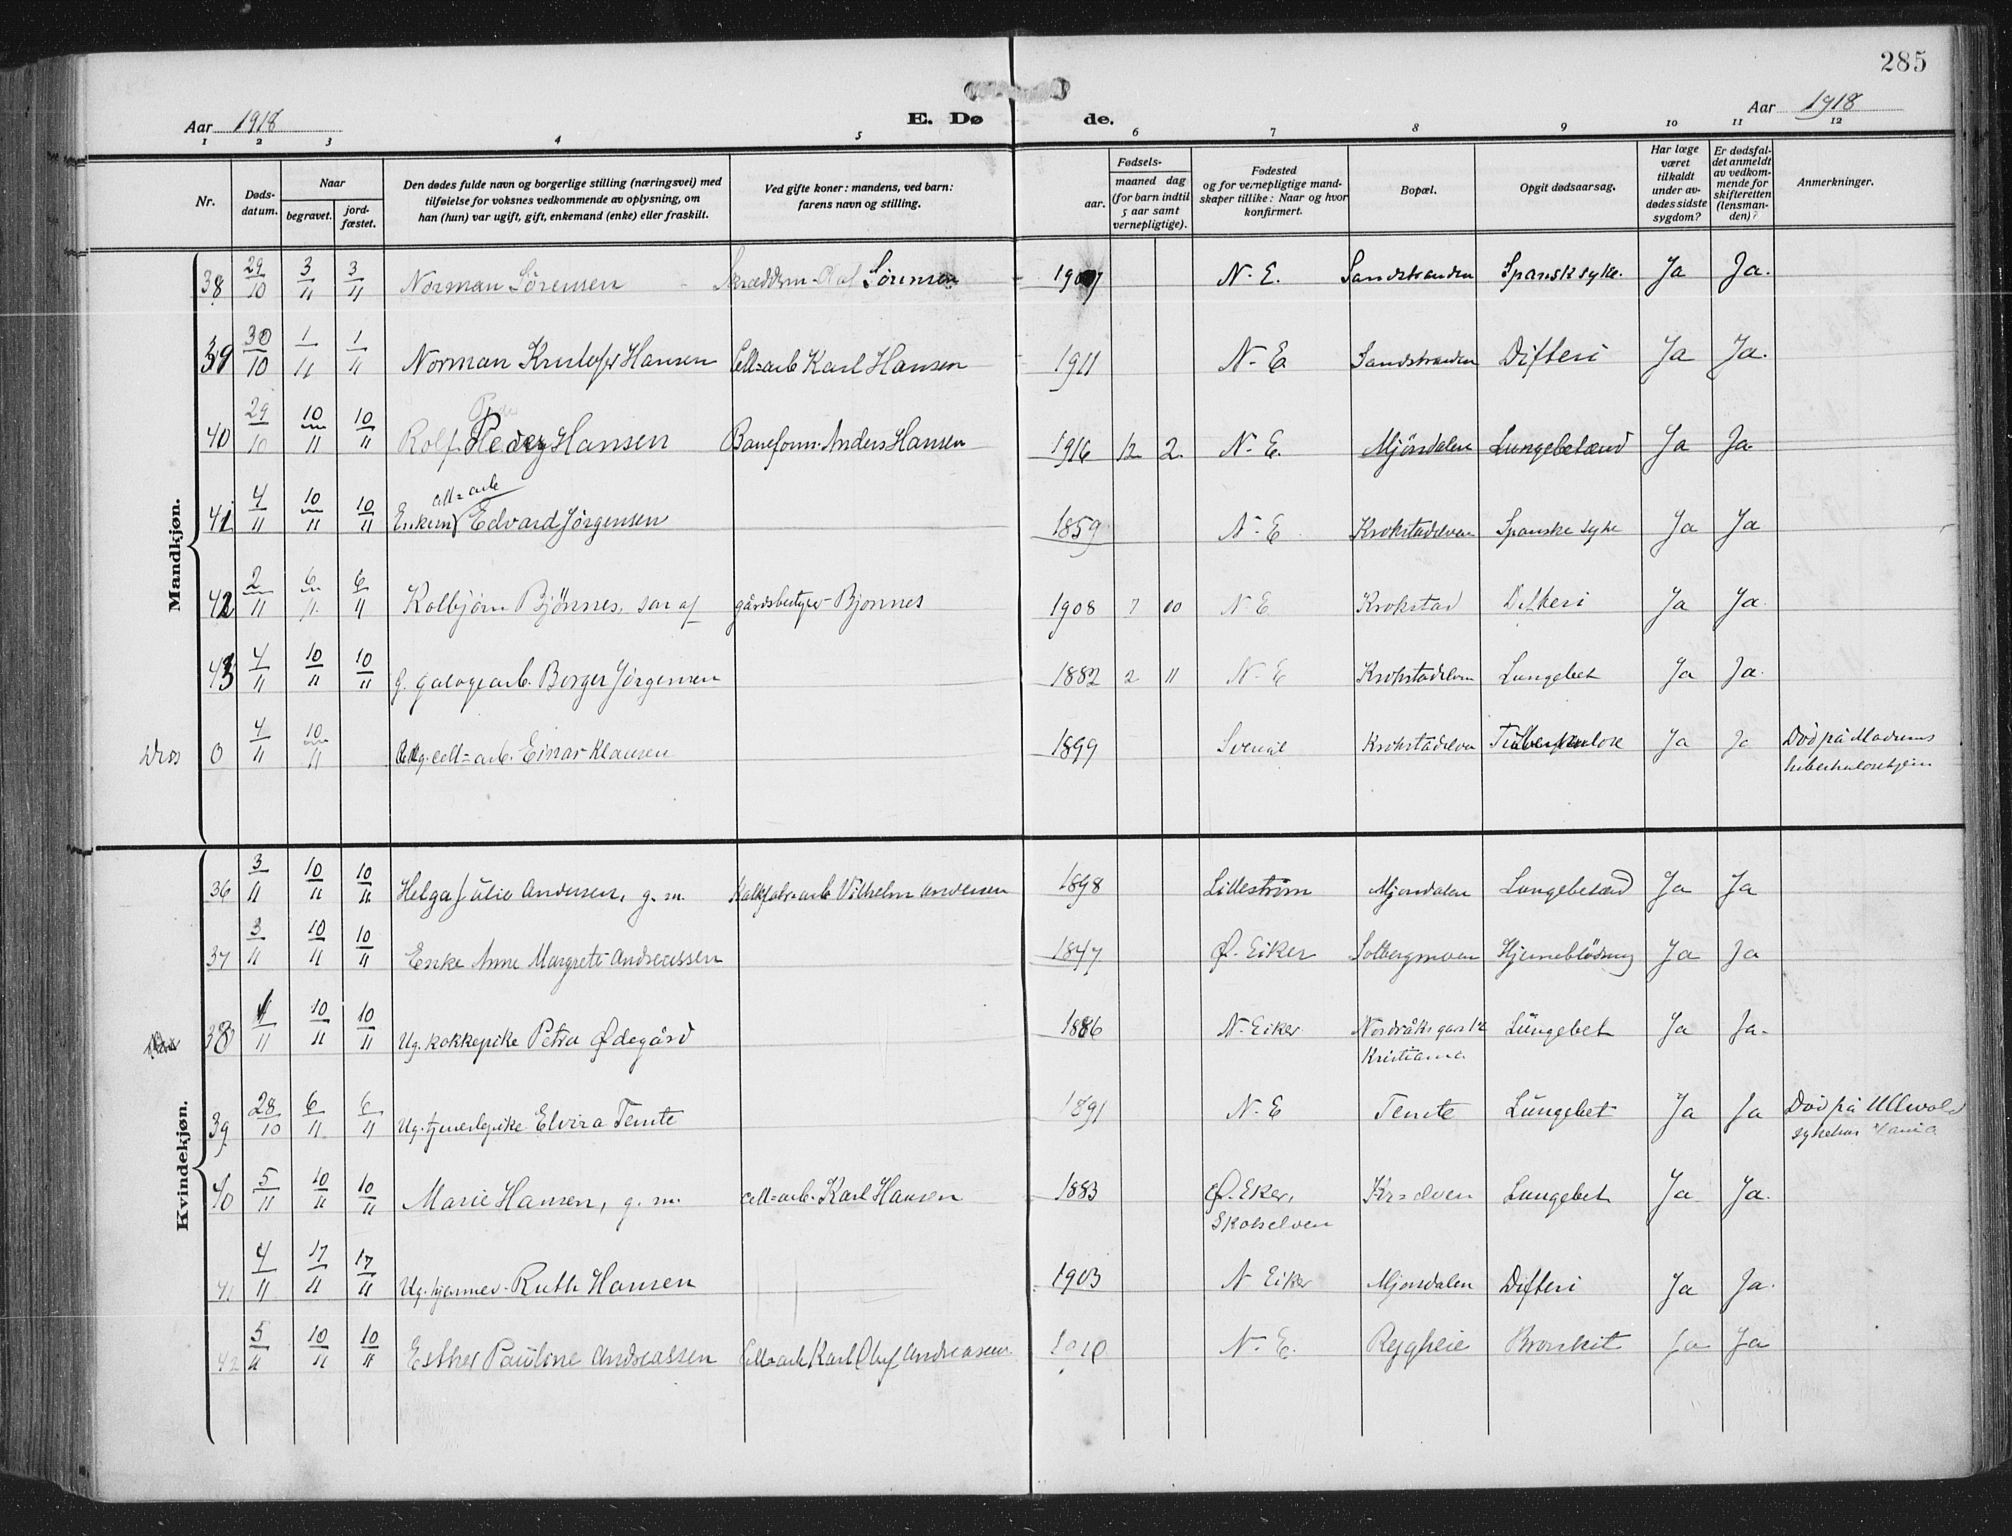 285
Aar 1918 E. Dø de. Aar 1918
1 2 3 4 5 6 7 8 9 10 11 12
Nr. Døds-datum. Naar begravet. jord-fæstet. Den dødes fulde navn og borgerlige stilling (næringsvei) med tilføielse for voksnes vedkommende av oplysning, om han (hun) var ugift, gift, enkemand (enke) eller fraskilt. Ved gifte koner: mandens, ved barn: farens navn og stilling. Fødsels- aar. maaned dag (for barn indtil 5 aar samt vernepligtige). Fødested og for vernepligtige mand-skaper tillike: Naar og hvor konfirmert. Bopæl. Opgit dødsaarsag. Har læge været tilkaldt under av-dødes sidste sygdom? Er dødsfal-det anmeldt av vedkom-mende for skifteretten (lensman-den)? Anmerkninger.
Mandkjøn.
38 29/10 3/11 3/11 Norman Sörensen Sörensen N. E. Sandstranden Spansk syke. Ja Ja.
39 30/10 1/11 1/11 Norman Kristofer Hansen Cell=arb Karl Hansen 1911 N. E Sandstranden Difteri Ja Ja.
40 29/10 10/11 10/11 Rolf Hansen Baneform. Anders Hansen 1916 12 2 N. E. Mjöndalen Lungebetænd Ja Ja.
41 4/11 10/11 10/11 Enkem cell=arb Edvard Jörgensen 1859 N. E Krokstadelven Spanske syke Ja Ja
42 2/11 6/11 6/11 Kolbjörn Bjönnes, sön af gårdsbestyrer Bjönnes 1908 7 10 N. E Krokstad Difteri Ja Ja.
43 4/11 10/11 10/11 G. galogearb. Borger Jörgensen 1882 2 11 N. E Krokstadelven Lungebet Ja Ja.
Diss 0 4/11 10/11 Ug. cell=arb. Einar Klausen 1899 Svenvik Krokstadelven Tuberkulose Ja Ja Död på Modums
tuberkulosehjem
Kvindekjøn.
36 3/11 10/11 10/11 Helga Julie Andersen, g. m. Kalkfabr=arb Vilhelm Andersen 1898 Lilleström Mjöndalen Lungebetænd Ja Ja
37 3/11 10/11 10/11 Enke Anne Margrete Andreassen 1847 Ø. Eiker Solbergmoen Hjerneblödning Ja Ja
38 4/11 10/11 10/11 Ug. kokkepike Petra Ødegård 1886 N. Eiker Nordråks gate 12 Lungebet Ja Ja.
Kristiania
39 28/10 6/11 6/11 Ug. tjenestepike Elvira Temte 1891 N. E Temte Lungebet Ja Ja Död på Ullevold
sykehus Kania
40 5/11 10/11 10/11 Marie Hansen, g. m. cell=arb. Karl Hansen 1883 Ø. Eker, Kr.s elven Lungebet Ja Ja.
Skotselven
41 4/11 17/11 17/11 Ug. hjemmev. Ruth Hansen 1903 N Eiker Mjöndalen Difteri Ja Ja.
42 5/11 10/11 10/11 Esther Pauline Andreassen Cell=arb Karl Oluf Andreassen 1910 N. E. Ryggheie Bronkit Ja Ja